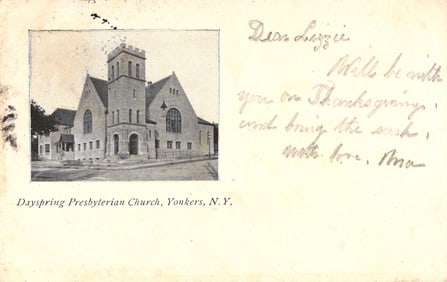 Dear Lizzie
Will be with
you on Thanksgiving,
and bring the
with love, Ma
Dayspring Presbyterian Church, Yonkers, N. Y.